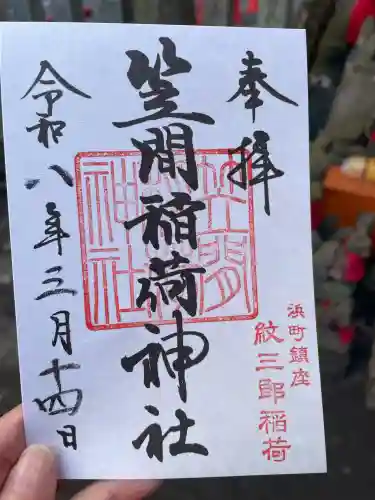 奉拝
笠間稲荷神社
令和八年三月十四日
笠間
稲荷
神社
浜町鎮座
紋三郎稲荷